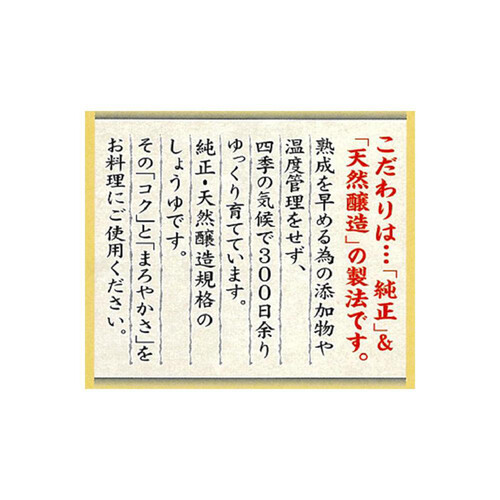 こだわりは…「純正」&
「天然醸造」の製法です。
熟成を早める為の添加物や
温度管理をせず、
四季の気候で300日余り
ゆっくり育てています。
純正・天然醸造規格の
しょうゆです。
その「コク」と「まろやかさ」を
お料理にご使用ください。